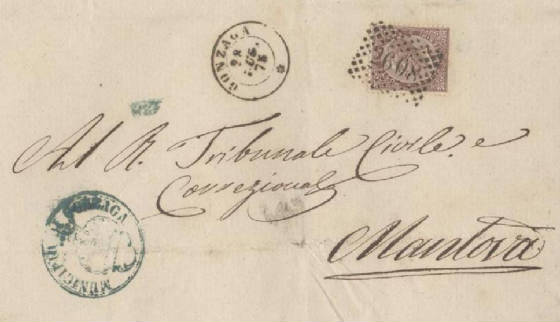 GONZAGA
28
75
Al R. Tribunale Civile e
Correzionale
Mantova
GONZAGA
MUNICIPIO